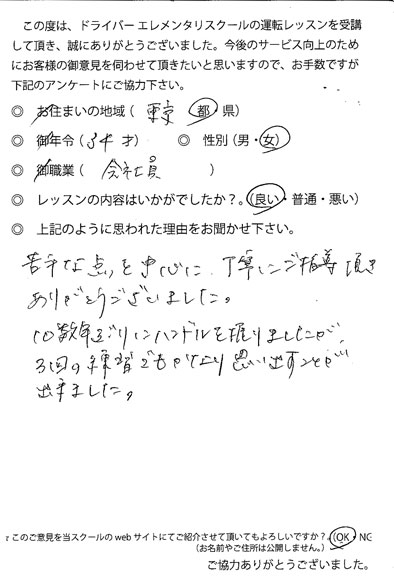 この度は、ドライバー エレメンタリスクールの運転レッスンを受講
して頂き、誠にありがとうございました。今後のサービス向上のため
にお客様の御意見を伺わせて頂きたいと思いますので、お手数ですが
下記のアンケートにご協力下さい。
◎ お住まいの地域（ 東京 都・県）
◎ 御年令（ 34 才） ◎ 性別（男・女）
◎ 御職業（ 会社員 ）
◎ レッスンの内容はいかがでしたか？。（良い・普通・悪い）
◎ 上記のように思われた理由をお聞かせ下さい。
苦手な点を中心に、丁寧にご指導頂き
ありがとうございました。
10数年ぶりにハンドルを握りましたが、
3回の練習でもかなり思い出すことが
出来ました。
このご意見を当スクールの web サイトにてご紹介させて頂いてもよろしいですか？。（OK・NG
（お名前やご住所は公開しません。）
ご協力ありがとうございました。